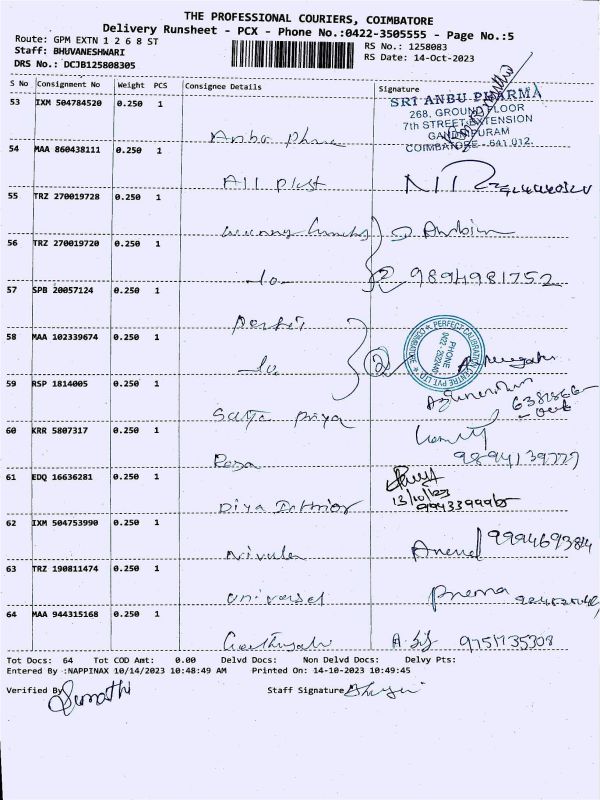 THE PROFESSIONAL COURIERS, COIMBATORE
Delivery Runsheet - PCX - Phone No.:0422-3505555 - Page No.:5
Route: GPM EXTN 1 2 6 8 ST
RS No.: 1258083
Staff: BHUVANESHWARI
RS Date: 14-Oct-2023
DRS No.: DCJB125808305
S No Consignment No Weight PCS Consignee Details Signature
53 IXM 504784520 0.250 1
SRI ANBU PHARMA
268, GROUND FLOOR
7th STREET, EXTENSION
GANDHIPURAM
COIMBATORE - 641 012.
54 MAA 860438111 0.250 1
All
55 TRZ 270019728 0.250 1
56 TRZ 270019720 0.250 1
2 9894981752
57 SPB 20057124 0.250 1
58 MAA 102339674 0.250 1
PERFECT CALIBRATION CENTRE PVT LTD
COIMBATORE
PHONE
2
59 RSP 1814005 0.250 1
Sathya Priya
60 KRR 5807317 0.250 1
Roja
61 EDQ 16636281 0.250 1
13/10/23
Diya Interior
62 IXM 504753990 0.250 1
Anend 9994693814
63 TRZ 190811474 0.250 1
Universal Prema
64 MAA 944315168 0.250 1
9751735308
Tot Docs: 64 Tot COD Amt: 0.00 Delvd Docs: Non Delvd Docs: Delvy Pts:
Entered By :NAPPINAX 10/14/2023 10:48:49 AM Printed On: 14-10-2023 10:49:45
Verified By Sumathi Staff Signature